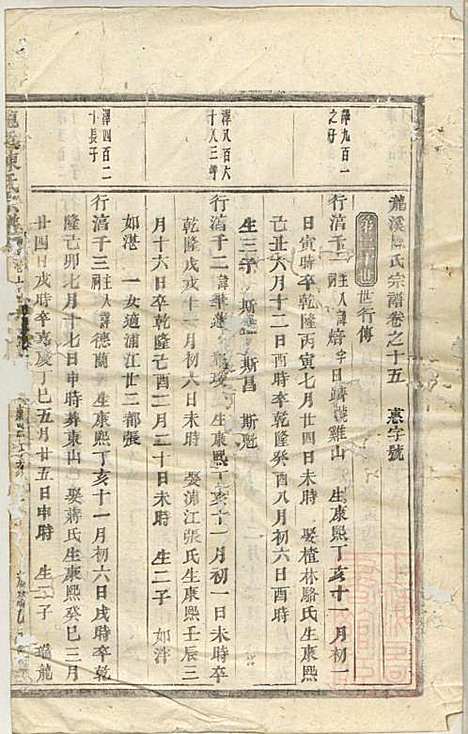 龍溪陳氏宗譜卷之十五 惠字號
世行傳
澤九百一
之子
行湻千一 主人諱焙字日躋號雞山 生康熙丁亥十一月初一
日寅時卒乾隆丙寅七月廿四日未時 娶楂林駱氏生康熙
己丑六月十二日酉時卒乾隆癸酉八月初六日酉時
生三子 斯 斯昌 斯
澤八百六
十八三子
行湻千二 諱 生康熙丁亥十一月初一日未時卒
乾隆戊戌十二月初六日未時 娶浦江張氏生康熙壬辰三
月十六日卒乾隆己酉二月二十日未時 生二子 如泮
如湛 一女適浦江廿二都張
澤四百二
十長子
行湻千三 主人諱德蘭 生康熙丁亥十一月初六日戌時卒乾
隆己卯七月十七日申時葬東山 娶蔣氏生康熙癸巳三月
廿四日戌時卒嘉慶丁巳五月廿五日申時 生二子 龍
龍溪陳氏宗譜